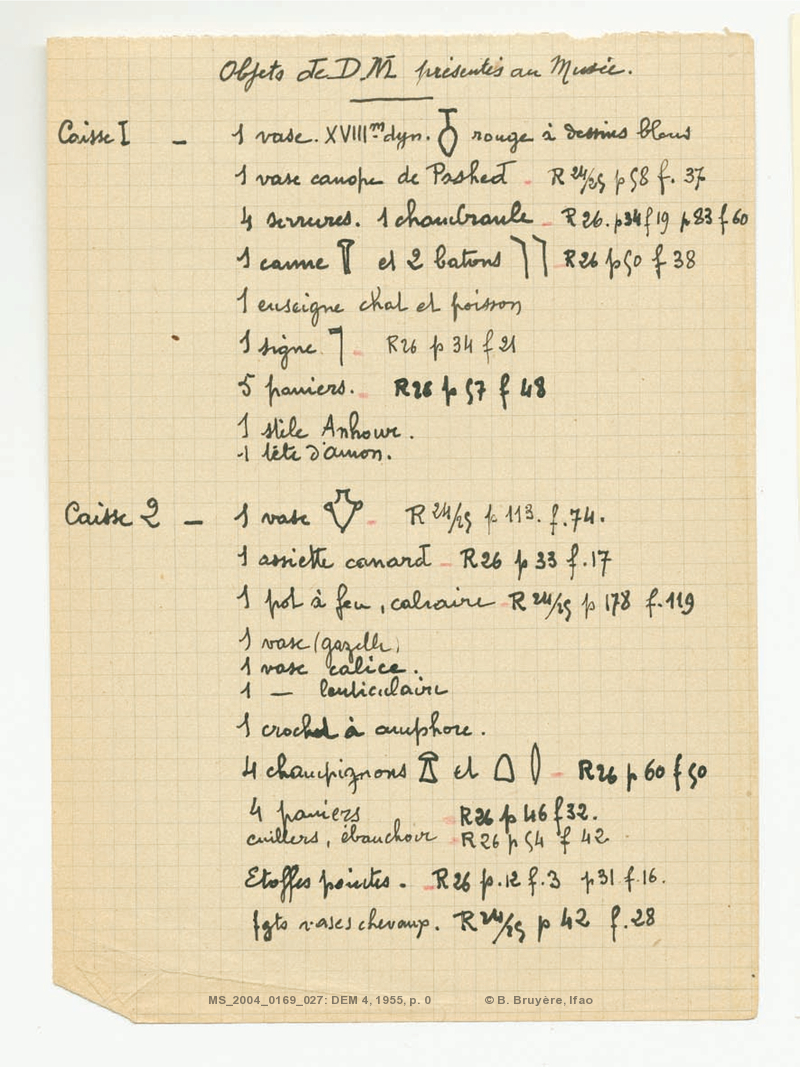 Objets de DM présentés au Musée.
Caisse I - 1 vase. XVIIIme dyn. rouge à dessins bleus
1 vase canope de Pashed - R 24/25 p 58 f. 37
4 serrures. 1 chambranle - R 26. p34 f19 p83 f60
1 canne et 2 batons R26 p50 f 38
1 enseigne chat et poisson
1 signe - R26 p 34 f 21
5 paniers. - R26 p 57 f 48
1 stèle Anhour.
1 tête d'amon.
Caisse 2 - 1 vase - R 24/25 p 113. f.74.
1 assiette canard - R26 p 33 f.17
1 pot à feu, calcaire - R 24/25 p 178 f.119
1 vase (gazelle)
1 vase calice.
1 — lenticulaire
1 crochet à amphore.
4 champignons et - R26 p 60 f 50
4 paniers - R26 p 46 f 32.
cuillers, ébauchoir - R26 p 54 f 42
Etoffes peintes. - R26 p.12 f.3 p31 f.16.
fgts vases chevaux. R 24/25 p 42 f.28
MS_2004_0169_027: DEM 4, 1955, p. 0 © B. Bruyère, Ifao